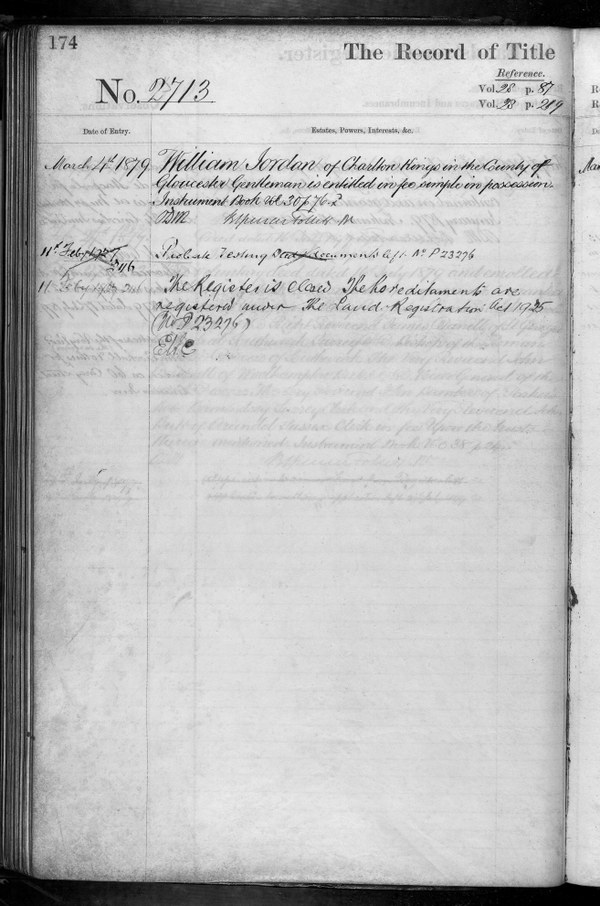 174
The Record of Title
Reference.
No. 2713
Vol. 28 p. 87
Vol. 28 p. 219
Date of Entry.
Estates, Powers, Interests, &c.
March 4th 1879
William Jordan of Charlton Kings in the County of
Gloucester Gentleman is entitled in fee simple in possession.
Instrument Book Vol. 30 p. 76.
11th Feby 1927
Probate Testing documents No P 23276
11 Feby
The Register is closed The hereditaments are
registered under The Land Registration Act 1925
(No P 23276)